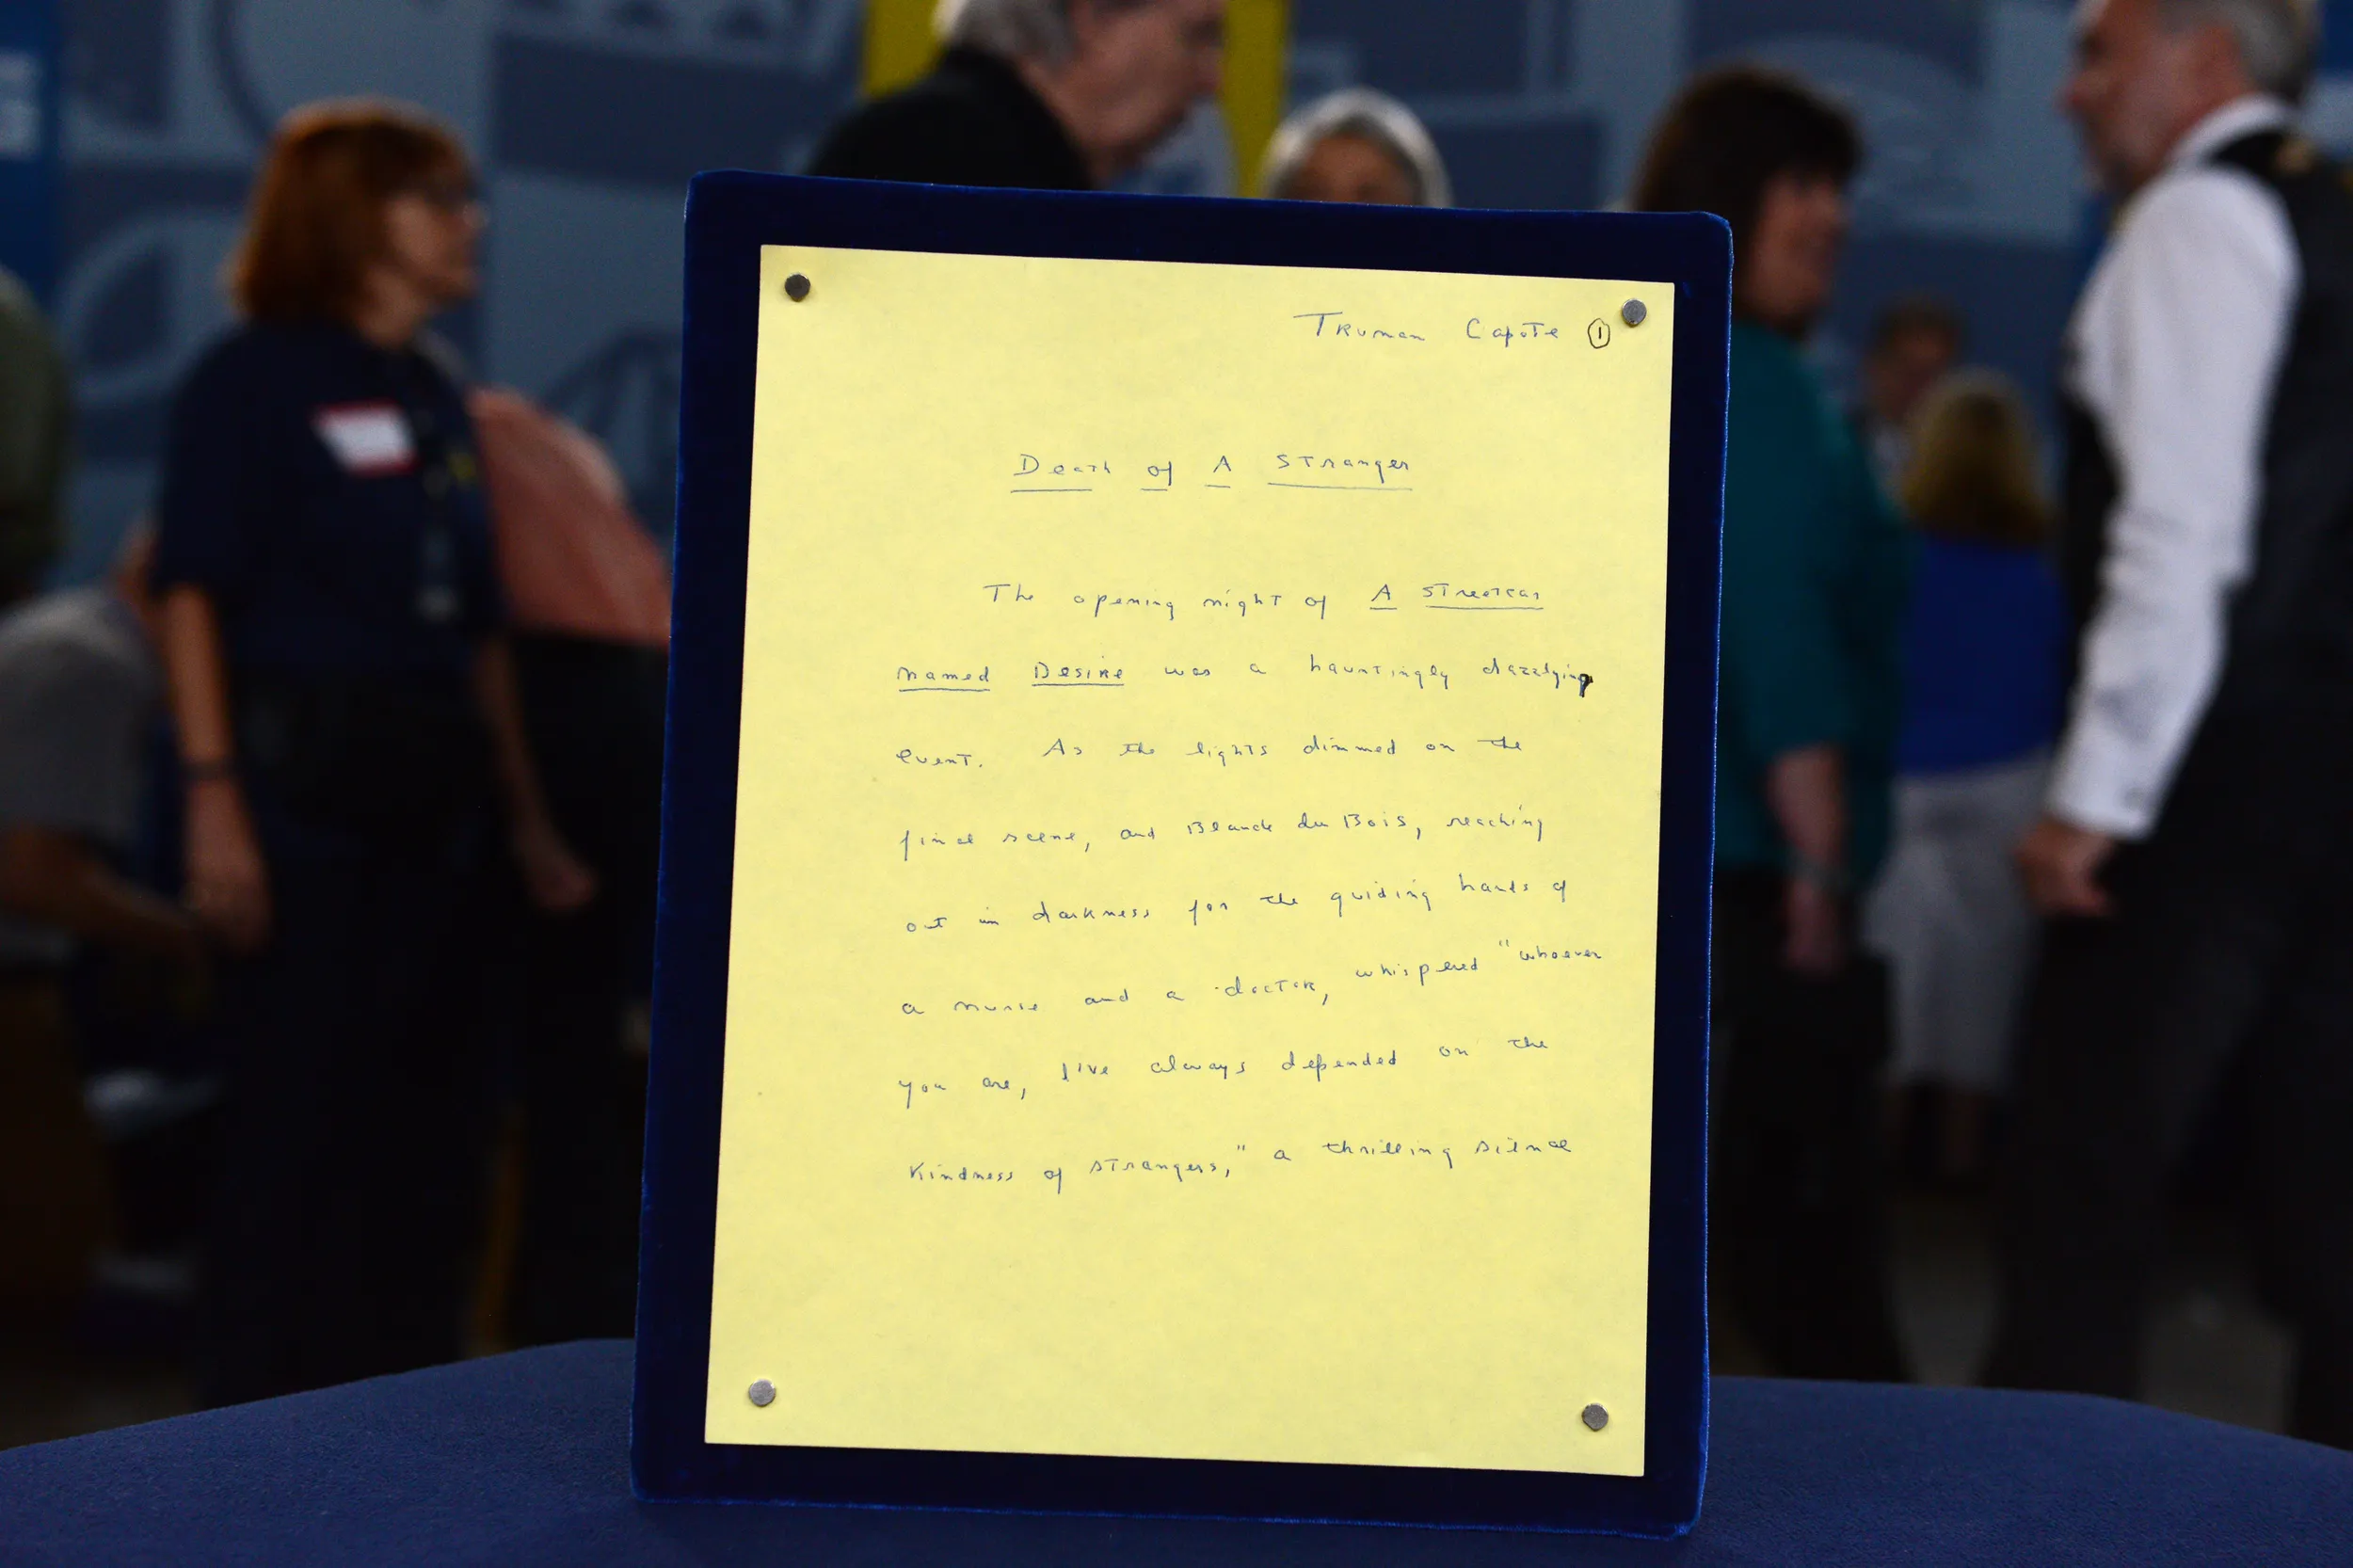 Truman Capote 1
Death of A Stranger
The opening night of A Streetcar
named Desire was a hauntingly dazzlying
event. As the lights dimmed on the
final scene, and Blanche du Bois, reaching
out in darkness for the guiding hands of
a nurse and a doctor, whispered "whoever
you are, I've always depended on the
kindness of strangers," a thrilling silence